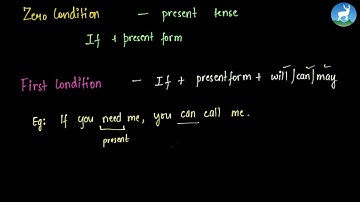 Zero Condition — present tense
If + present form
First Condition — If + present form + will/can/may
Eg: If you need me, you can call me.
present